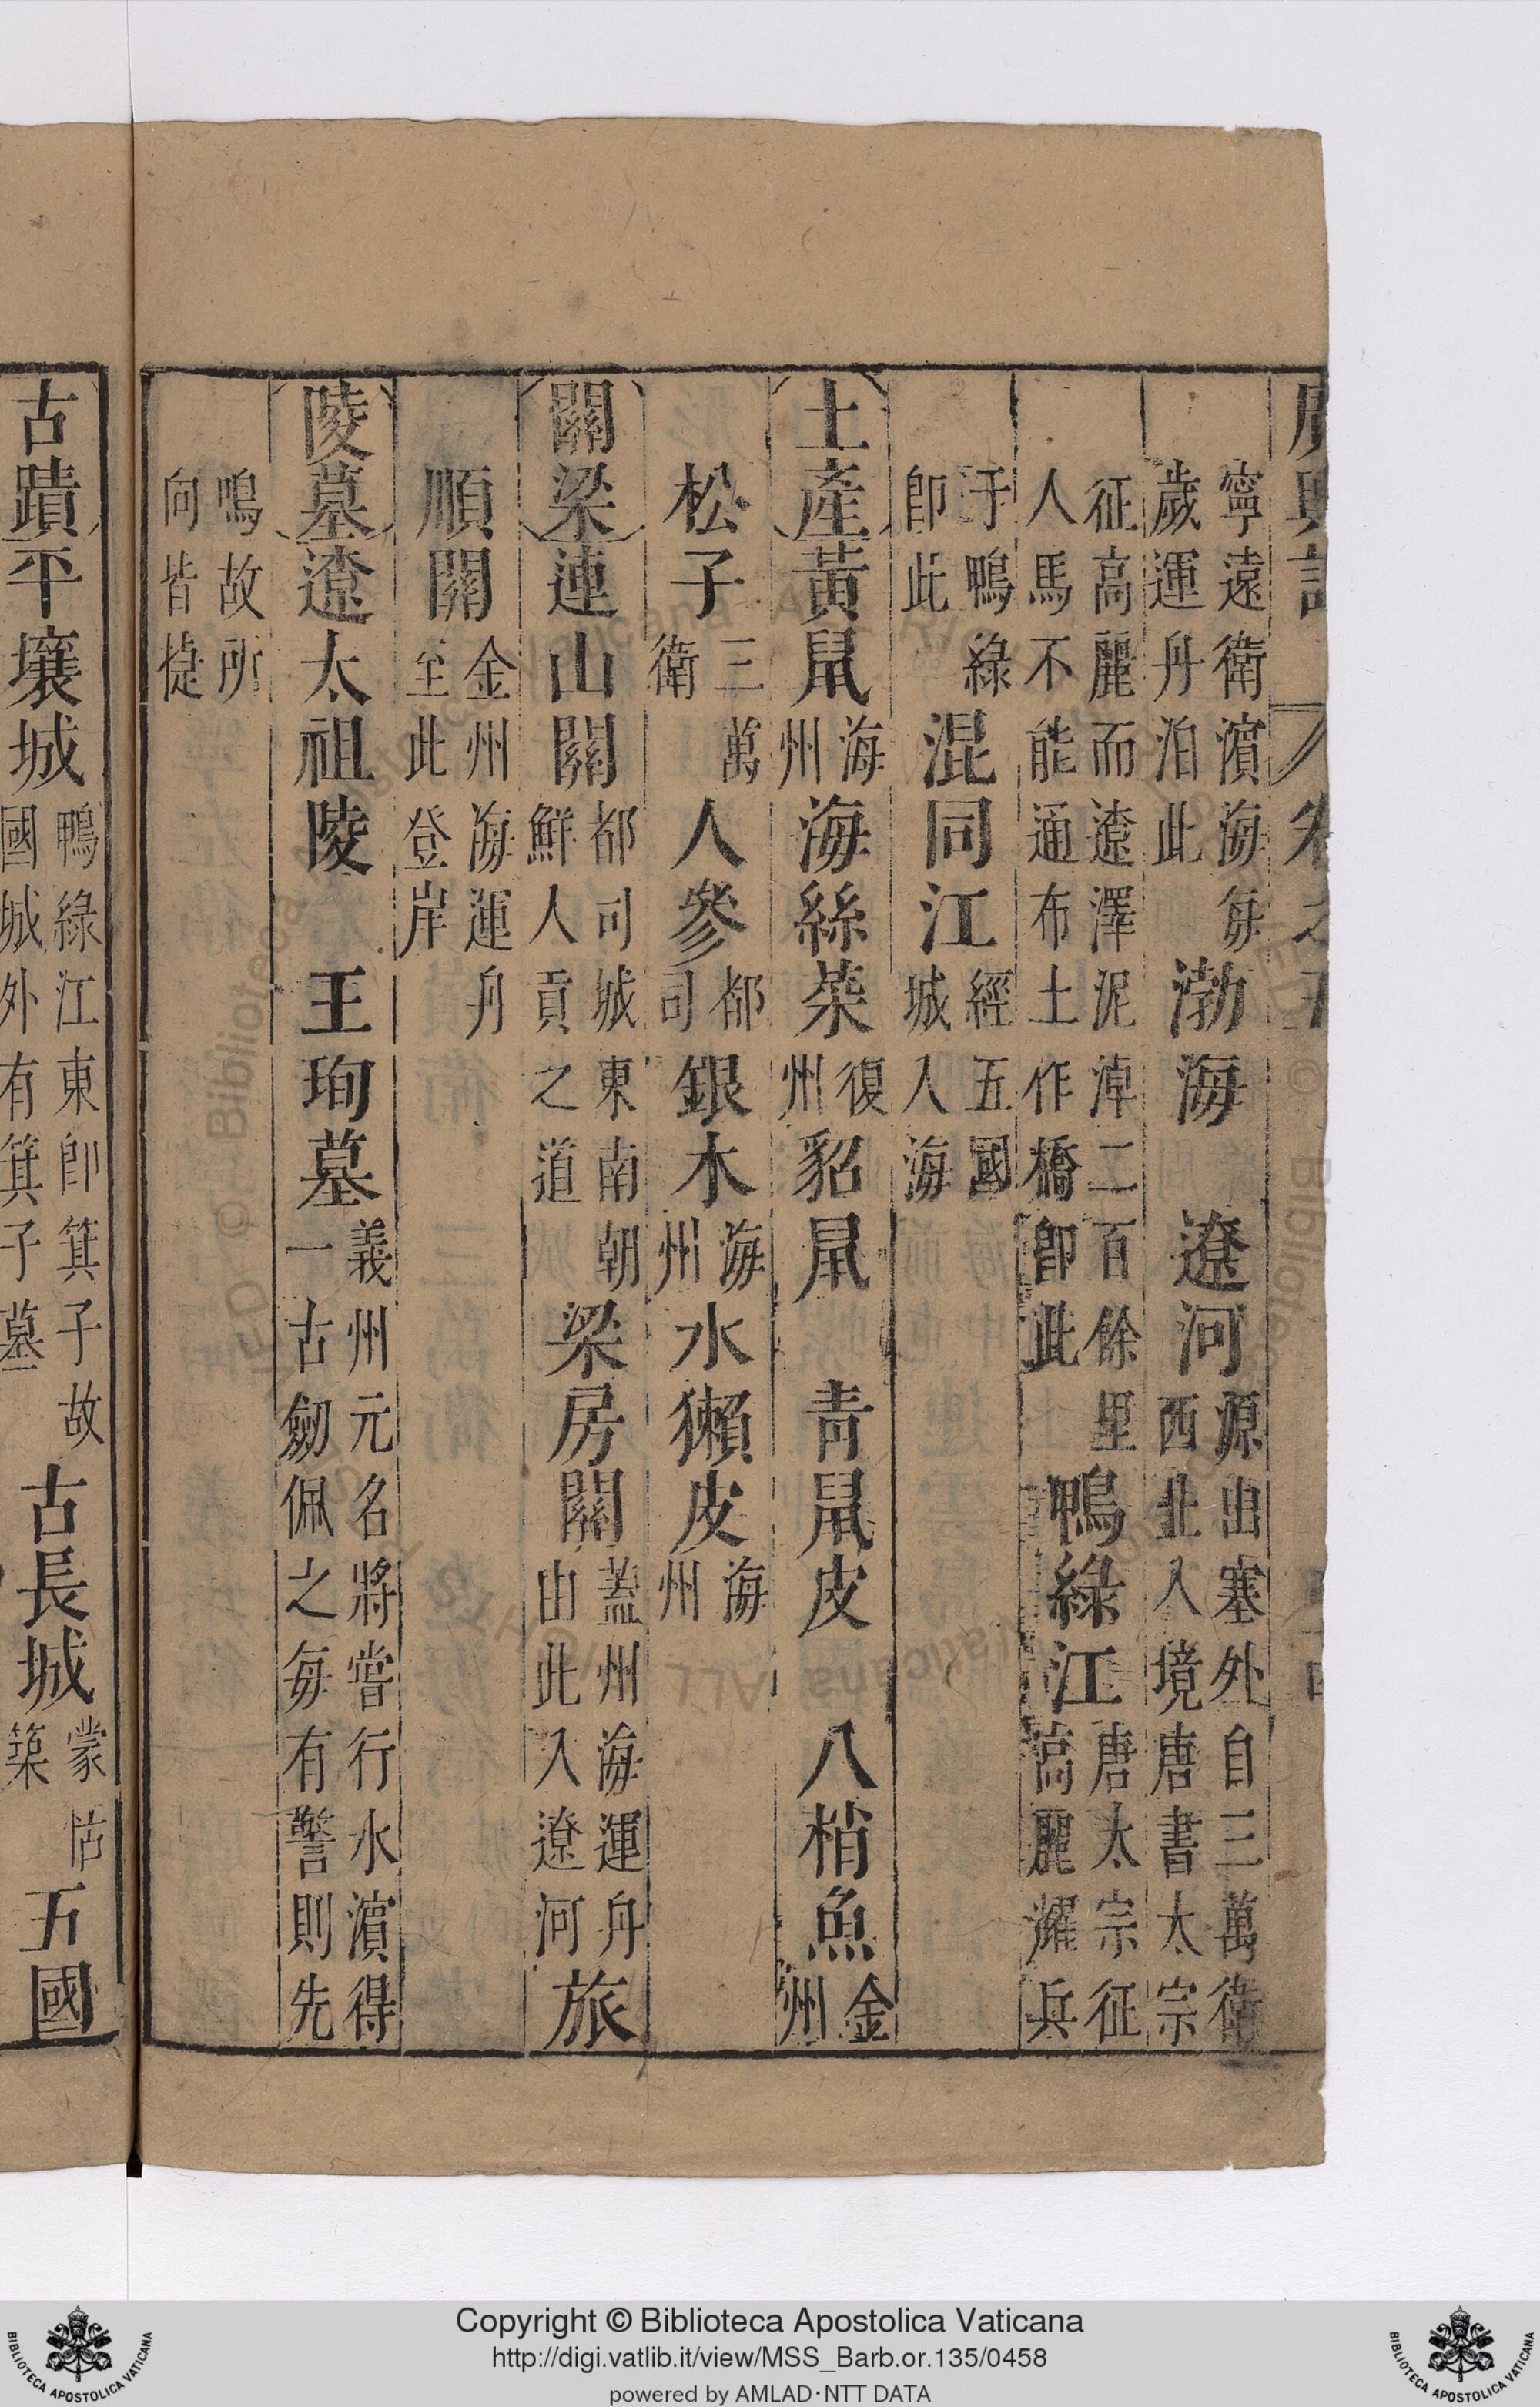 廣輿記 卷之五
寧遠衛濱海每歲運舟泊此 渤海 遼河 源出塞外自三萬衛西北入境唐書太宗
征高麗而遼澤泥淖二百餘里人馬不能通布土作橋卽此 鴨綠江 唐太宗征高麗耀兵
于鴨綠卽此 混同江 經五國城入海
土產 黃鼠 海州 海絲菜 復州 貂鼠 青鼠皮 八梢魚 金州
松子 三萬衛 人參 都司 銀木 海州 水獺皮 海州
關梁 連山關 都司城東南朝鮮人貢之道 梁房關 蓋州海運舟由此入遼河 旅
順關 金州海運舟至此登岸
陵墓 遼太祖陵 王珣墓 義州元名將嘗行水濵得一古劒佩之每有警則先
鳴故所向皆捷
古蹟 平壤城 鴨綠江東卽箕子故國城外有箕子墓 古長城 蒙恬築 五國
Copyright © Biblioteca Apostolica Vaticana
http://digi.vatlib.it/view/MSS_Barb.or.135/0458
powered by AMLAD·NTT DATA
BIBLIOTECA APOSTOLICA VATICANA
BIBLIOTECA APOSTOLICA VATICANA